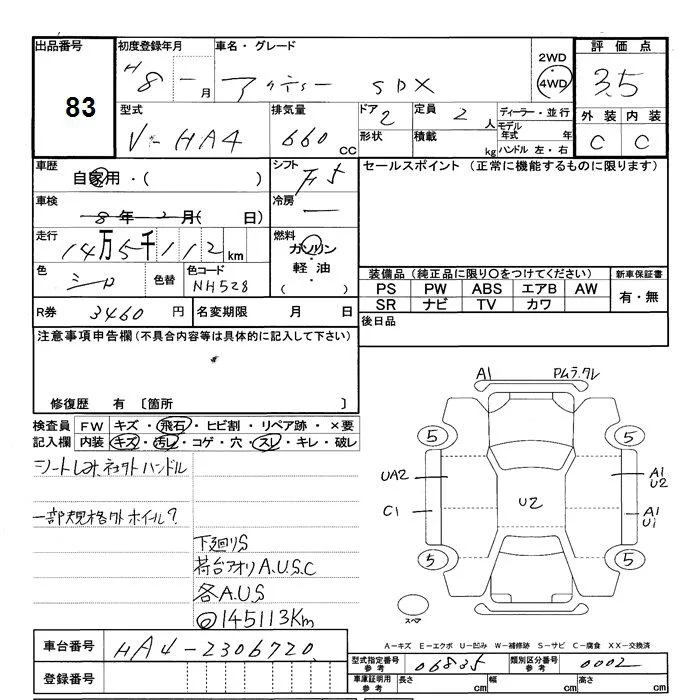 出品番号 初度登録年月 車名・グレード 評価点
83 H8 - 月 アクティー SDX 2WD 4WD 3.5
型式 排気量 ドア 2 定員 2 人 ディーラー・並行 外装 内装
V-HA4 660 CC 形状 積載 kg モデル年式 年 ハンドル 左・右 C C
車歴 自家用・( ) シフト F5 セールスポイント (正常に機能するものに限ります)
車検 8年2月( 日) 冷房 —
走行 14万5千112km 燃料 ガソリン・軽油 ( )
色 シロ 色替 色コード NH528
装備品(純正品に限り○をつけてください) 新車保証書
PS PW ABS エアB AW 有・無
SR ナビ TV カワ
R券 3460 円 名変期限 月 日 後日品
注意事項申告欄(不具合内容等は具体的に記入して下さい)
修復歴 有 〔箇所 〕
検査員 FW キズ・飛石・ヒビ割・リペア跡・×要
記入欄 内装 キズ・汚レ・コゲ・穴・スレ・キレ・破レ
シートしみ、ネッカトハンドル
一部規格外ホイール?
下廻りS
荷台アオリA.U.S.C
各A.U.S
◎145113Km
A1
5 5
UA2 A1 U2
U2
C1 A1 U1
5 5
スペア
A-キズ E-エクボ U-凹み W-補修跡 S-サビ C-腐食 XX-交換済
車台番号 HA4-2306720
登録番号
型式指定番号 参考 06835 類別区分番号 参考 0002
車庫証明用 参考 長さ cm 幅 cm 高さ cm